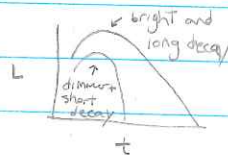 bright and
long decay
L
dimmer +
short
decay
t